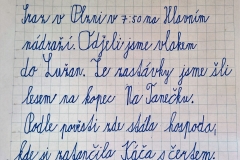 sraz v Plzni v 7:50 na Hlavním
nádraží. Odjeli jsme vlakem
do Lužan. Ze zastávky jsme šli
lesem na kopec Na Tanečku.
Podle pověsti zde stála hospoda,
kde si zatančila Káča s čertem.